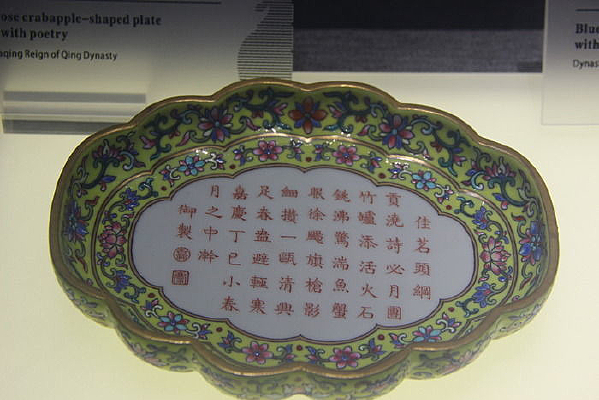 ose crabapple-shaped plate
with poetry
aqing Reign of Qing Dynasty
Blu
with
Dynas
佳茗頭綱
貢澆詩必月團
竹爐添活火石
銚沸驚湍魚蟹
眼徐颺旗槍影
細攢一甌清興
足春盎避輕寒
嘉慶丁巳小春
月之中澣
御製